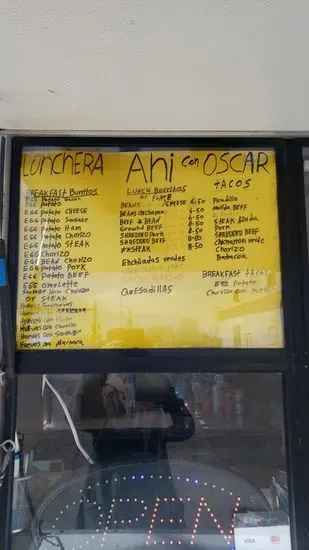 LONCHERA Ahi con OSCAR
BREAKFAST Burritos
EGG Potato
EGG Potato CHEESE
EGG Potato Sausage
EGG Potato Ham
EGG Potato Chorizo
EGG Potato STEAK
EGG Chorizo
EGG BEAN Chorizo
EGG Potato Pork
EGG Potato BEEF
EGG Omelette
Sausage Ham Chorizo
or STEAK
Huevos
Huevos
Huevos con Ham
Huevos con Chorizo
Huevos con Sausage
Huevos con
LUNCH Burritos
or
BEANS CHEESE 6.50
BEANS Chicharron 6.50
BEEF & BEAN 6.50
Ground BEEF 8.50
SHREDDED BEEF 8.50
SHREDDED BEEF 8.50
STEAK 8.50
Enchiladas verdes
QUESADILLAS
TACOS
Picadillo
BEEF
STEAK
Pork
SHREDDED BEEF
Chicharron verde
Chorizo
Barbacoa
BREAKFAST TACOS
EGG Potato
Chorizo con
OPEN
VISA